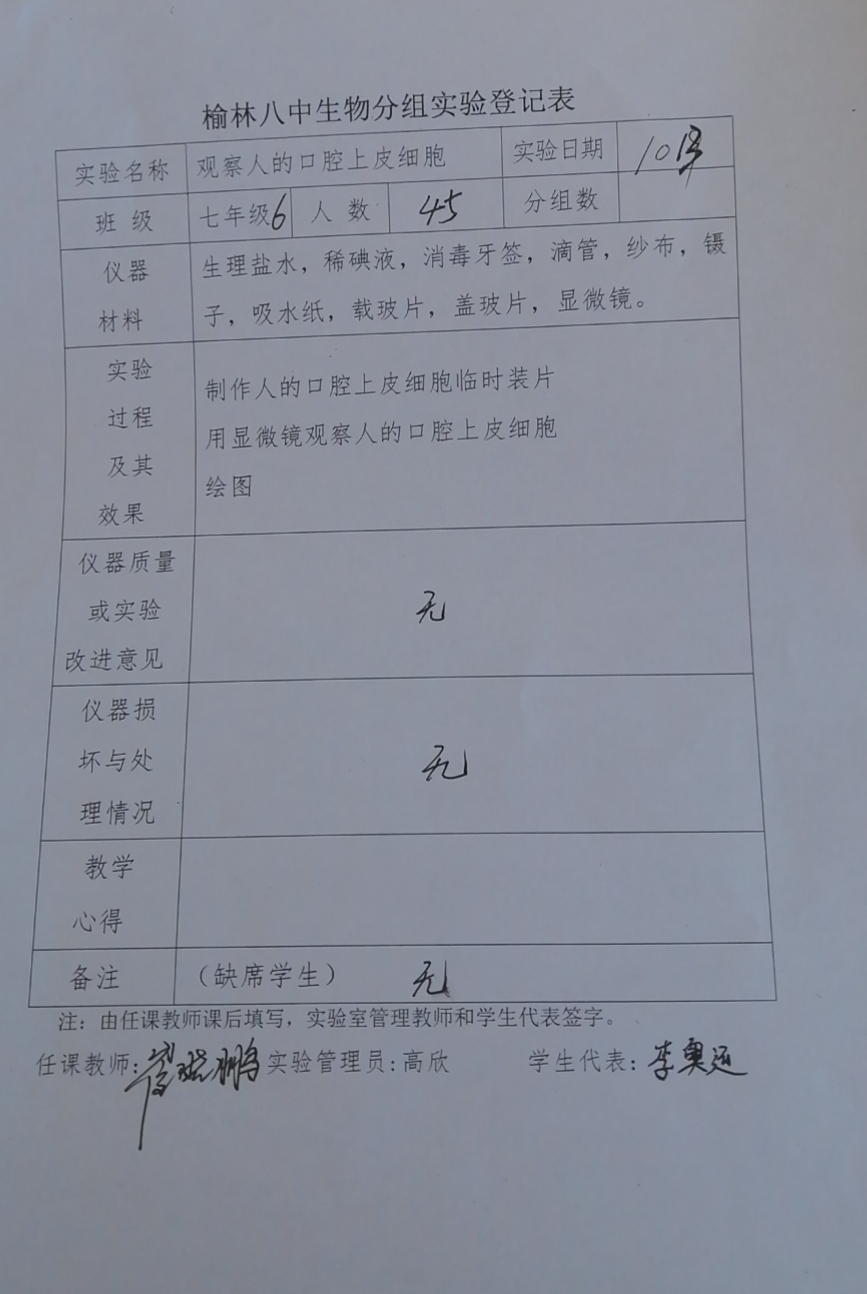 榆林八中生物分组实验登记表
实验名称 观察人的口腔上皮细胞 实验日期
班 级 七年级6 人 数 45 分组数
仪器
材料
生理盐水，稀碘液，消毒牙签，滴管，纱布，镊
子，吸水纸，载玻片，盖玻片，显微镜。
实验
过程
及其
效果
制作人的口腔上皮细胞临时装片
用显微镜观察人的口腔上皮细胞
绘图
仪器质量
或实验
改进意见
无
仪器损
坏与处
理情况
无
教学
心得
备注 （缺席学生） 无
注：由任课教师课后填写，实验室管理教师和学生代表签字。
任课教师： 实验管理员：高欣 学生代表：李奥运